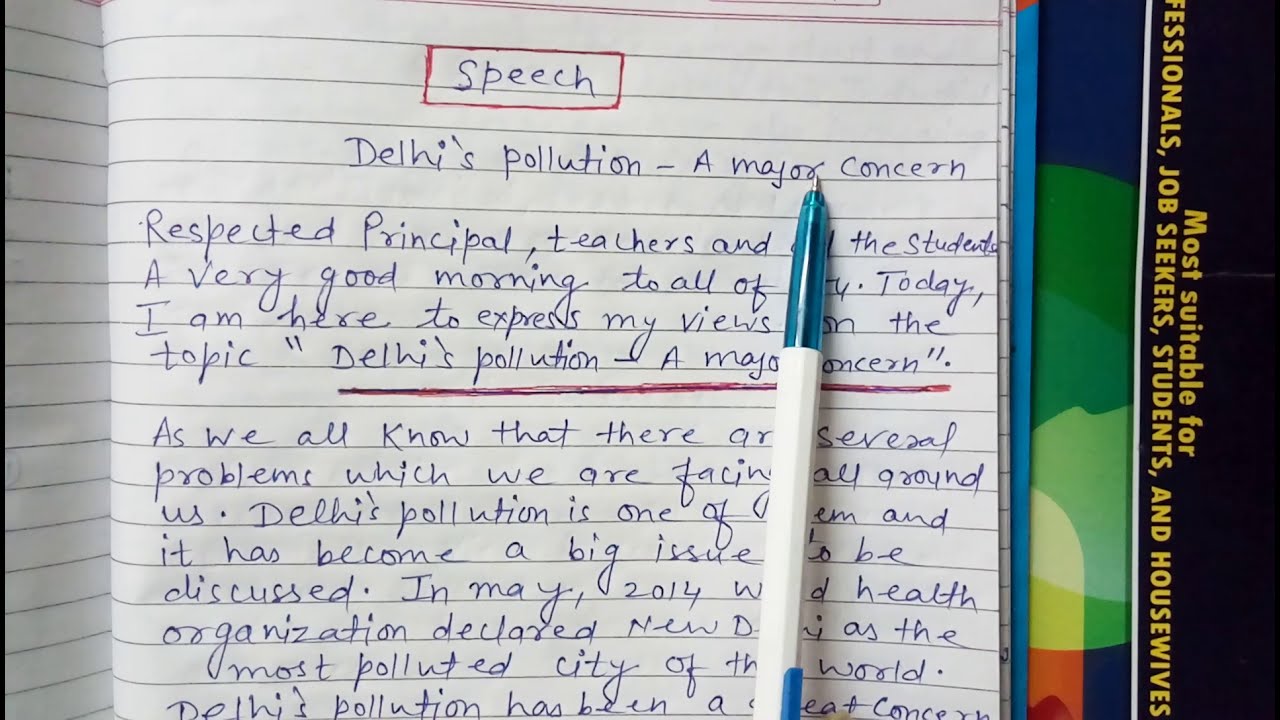 Speech
Delhi's pollution - A major concern
Respected Principal, teachers and the students
A very good morning to all of Today,
I am here to express my views on the
topic " Delhi's pollution - A major concern".
As we all know that there are several
problems which we are facing all around
us. Delhi's pollution is one of and
it has become a big issue to be
discussed. In may, 2014 health
organization declared New as the
most polluted city of world.
Delhi's pollution has been a concern
FESSIONALS, JOB SEEKERS, STUDENTS, AND HOUSEWIVES
Most suitable for